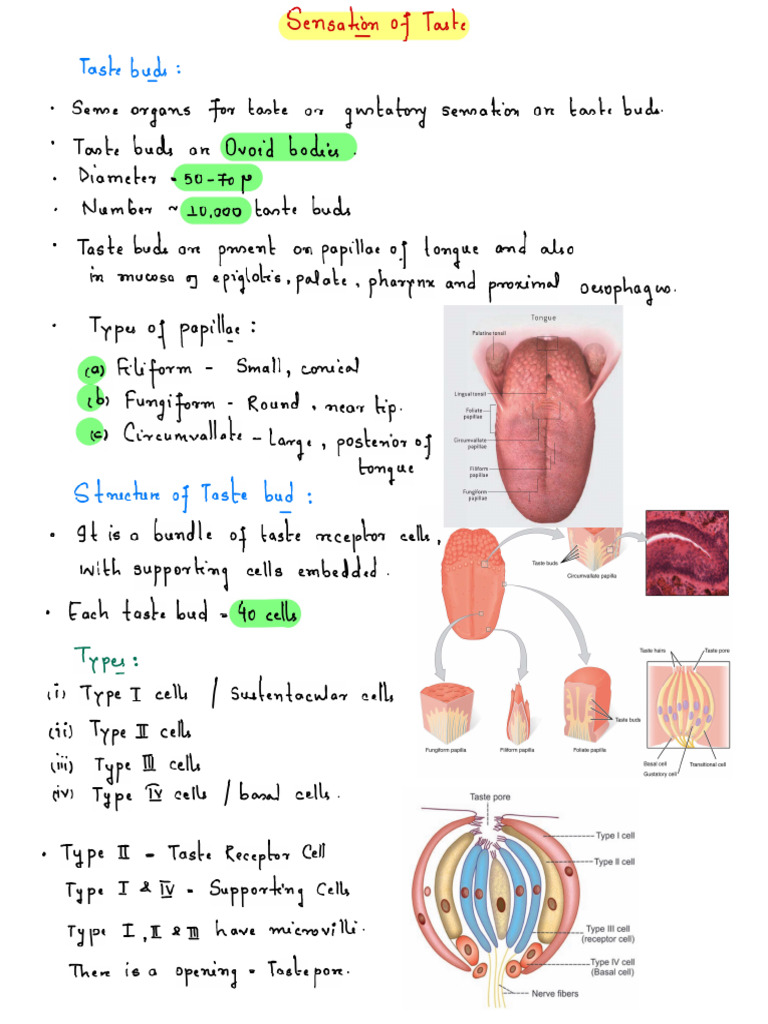 Sensation of Taste
Taste buds :
• Sense organs for taste or gustatory sensation are taste buds.
• Taste buds are Ovoid bodies.
• Diameter - 50-70 μ
• Number ~ 10,000 taste buds
• Taste buds are present on papillae of tongue and also
in mucosa of epiglotis, palate, pharynx and proximal oesophagus.
• Types of papillae :
(a) Filiform - Small, conical
(b) Fungiform - Round, near tip.
(c) Circumvallate - Large, posterior of
tongue
Tongue
Palatine tonsil
Lingual tonsil
Foliate
papillae
Circumvallate
papillae
Filiform
papillae
Fungiform
papillae
Structure of Taste bud :
• It is a bundle of taste receptor cells,
with supporting cells embedded.
• Each taste bud - 40 cells
Taste buds
Circumvallate papilla
Fungiform papilla
Filiform papilla
Foliate papilla
Taste buds
Taste hairs
Taste pore
Basal cell
Gustatory cell
Transitional cell
Types :
(i) Type I cells / Sustentacular cells
(ii) Type II cells
(iii) Type III cells
(iv) Type IV cells / basal cells.
• Type II - Taste Receptor Cell
Type I & IV - Supporting Cells
Type I, II & III have microvilli.
There is a opening - Taste pore.
Taste pore
Type I cell
Type II cell
Type III cell
(receptor cell)
Type IV cell
(Basal cell)
Nerve fibers